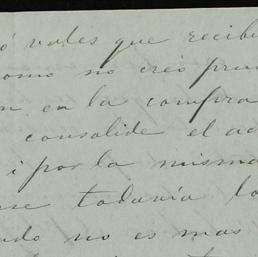 ó vales que recibi
como no creo pru
n en la compra
consolide el ac
i por la misma
se todavía lo
ndo no es mas